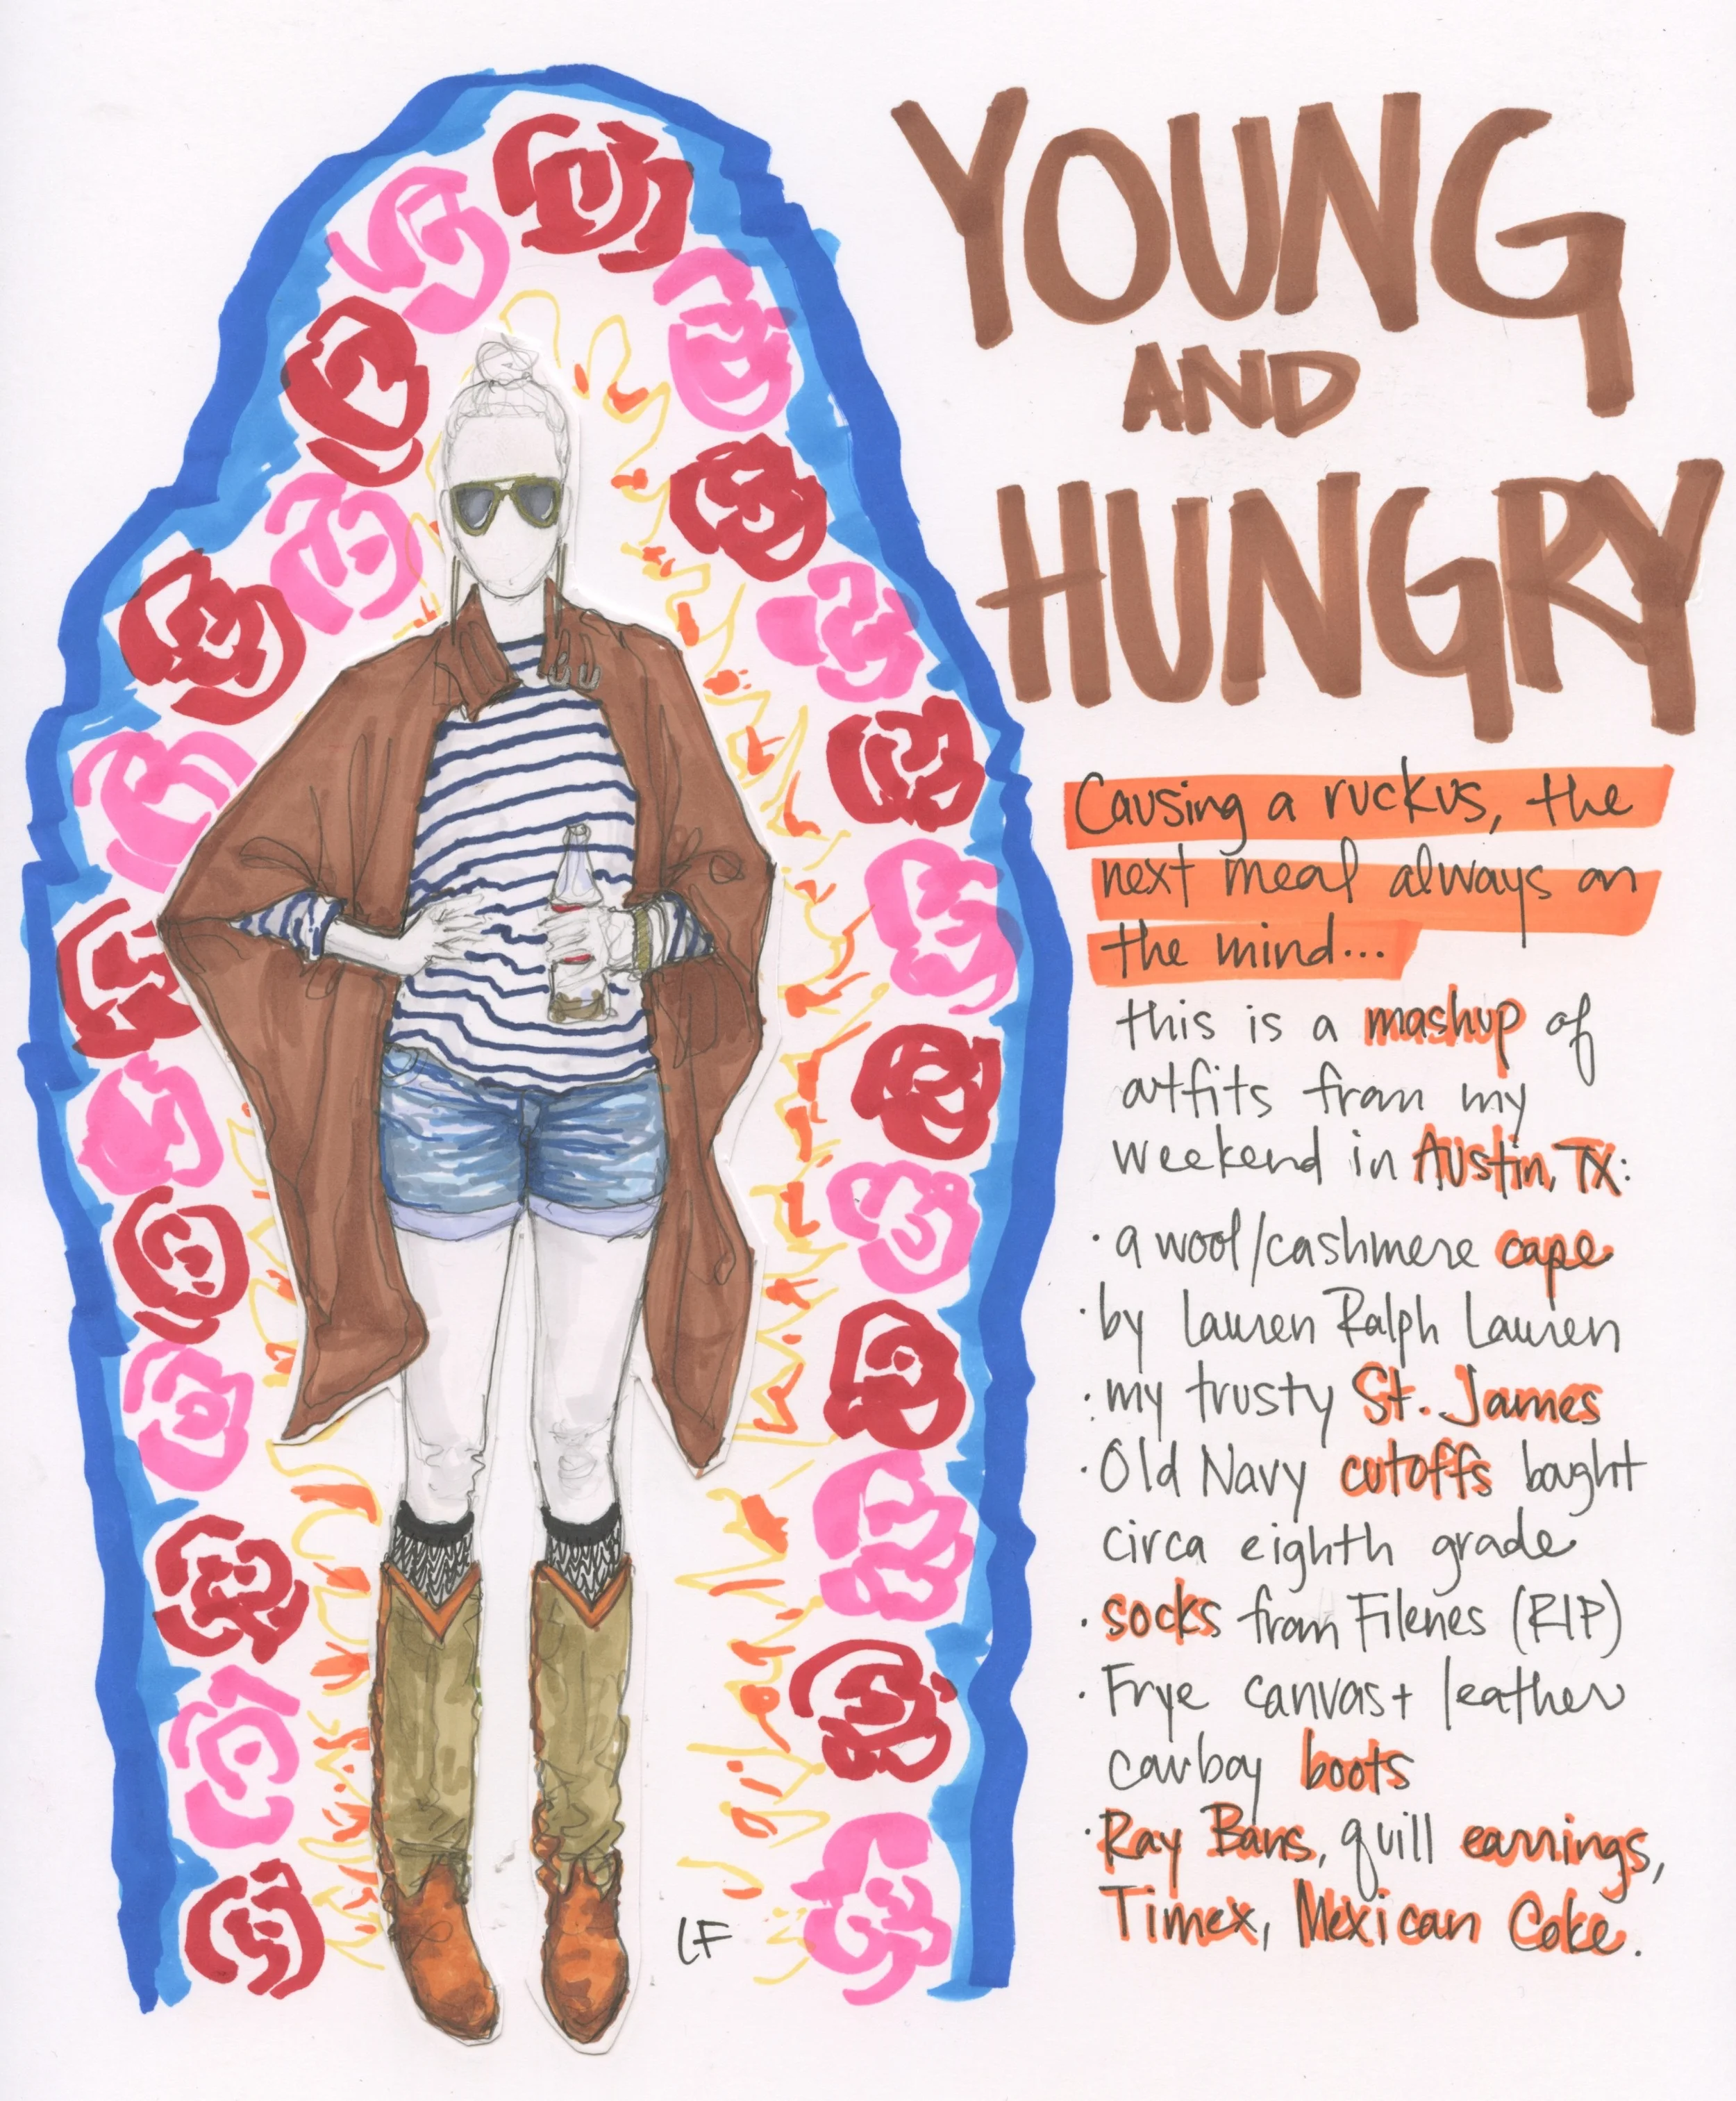 YOUNG
AND
HUNGRY
Causing a ruckus, the
next meal always on
the mind...
this is a mashup of
outfits from my
weekend in Austin, TX:
· a wool/cashmere cape
· by Lauren Ralph Lauren
· my trusty St. James
· Old Navy cutoffs bought
circa eighth grade
· socks from Filenes (RIP)
· Frye canvas + leather
cowboy boots
· Ray Bans, quill earrings,
Timex, Mexican Coke.
LF